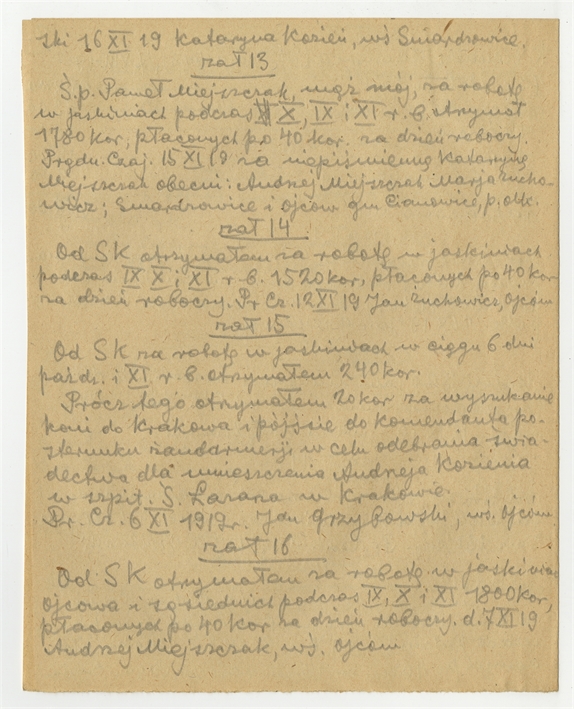 ski 16 XI 19 Katarzyna Kozień, wś Smardzowice.
zał 13
Ś.p. Paweł Miejszczak, mąż mój, za robotę
w jaskiniach podczas X, IX i XI r. b. otrzymał
1780 kor, płaconych po 40 kor. za dzień roboczy.
15 XI 19 za niepiśmienną Katarzynę
Miejszczak obecni: Andrzej Miejszczak i Marja Żucho-
wicz; Smardzowice i Ojców gm Cianowice, p. olk.
zał 14
Od SK otrzymałem za robotę w jaskiniach
podczas IX X i XI r. b. 1520 kor, płaconych po 40 kor
za dzień roboczy. Pr Cz. 12 XI 19 Jan Żuchowicz, Ojców
zał 15
Od SK za robotę w jaskiniach w ciągu 6 dni
paźdz. i XI r. b. otrzymałem 240 kor.
Prócz tego otrzymałem 20 kor za wyszukanie
koni do Krakowa i pójście do komendanta po-
sterunku żandarmerji w celu odebrania świa-
dectwa dla umieszczenia Andrzeja Kozienia
w szpit. Ś. Łazarza w Krakowie.
Pr. Cz. 6 XI 1919 r. Jan Grzybowski, wś. Ojców
zał 16
Od SK otrzymałem za robotę w jaskiniach
Ojcowa i sąsiednich podczas IX, X i XI 1800 kor,
płaconych po 40 kor za dzień roboczy. d. 7 XI 19
Andrzej Miejszczak, wś. Ojców